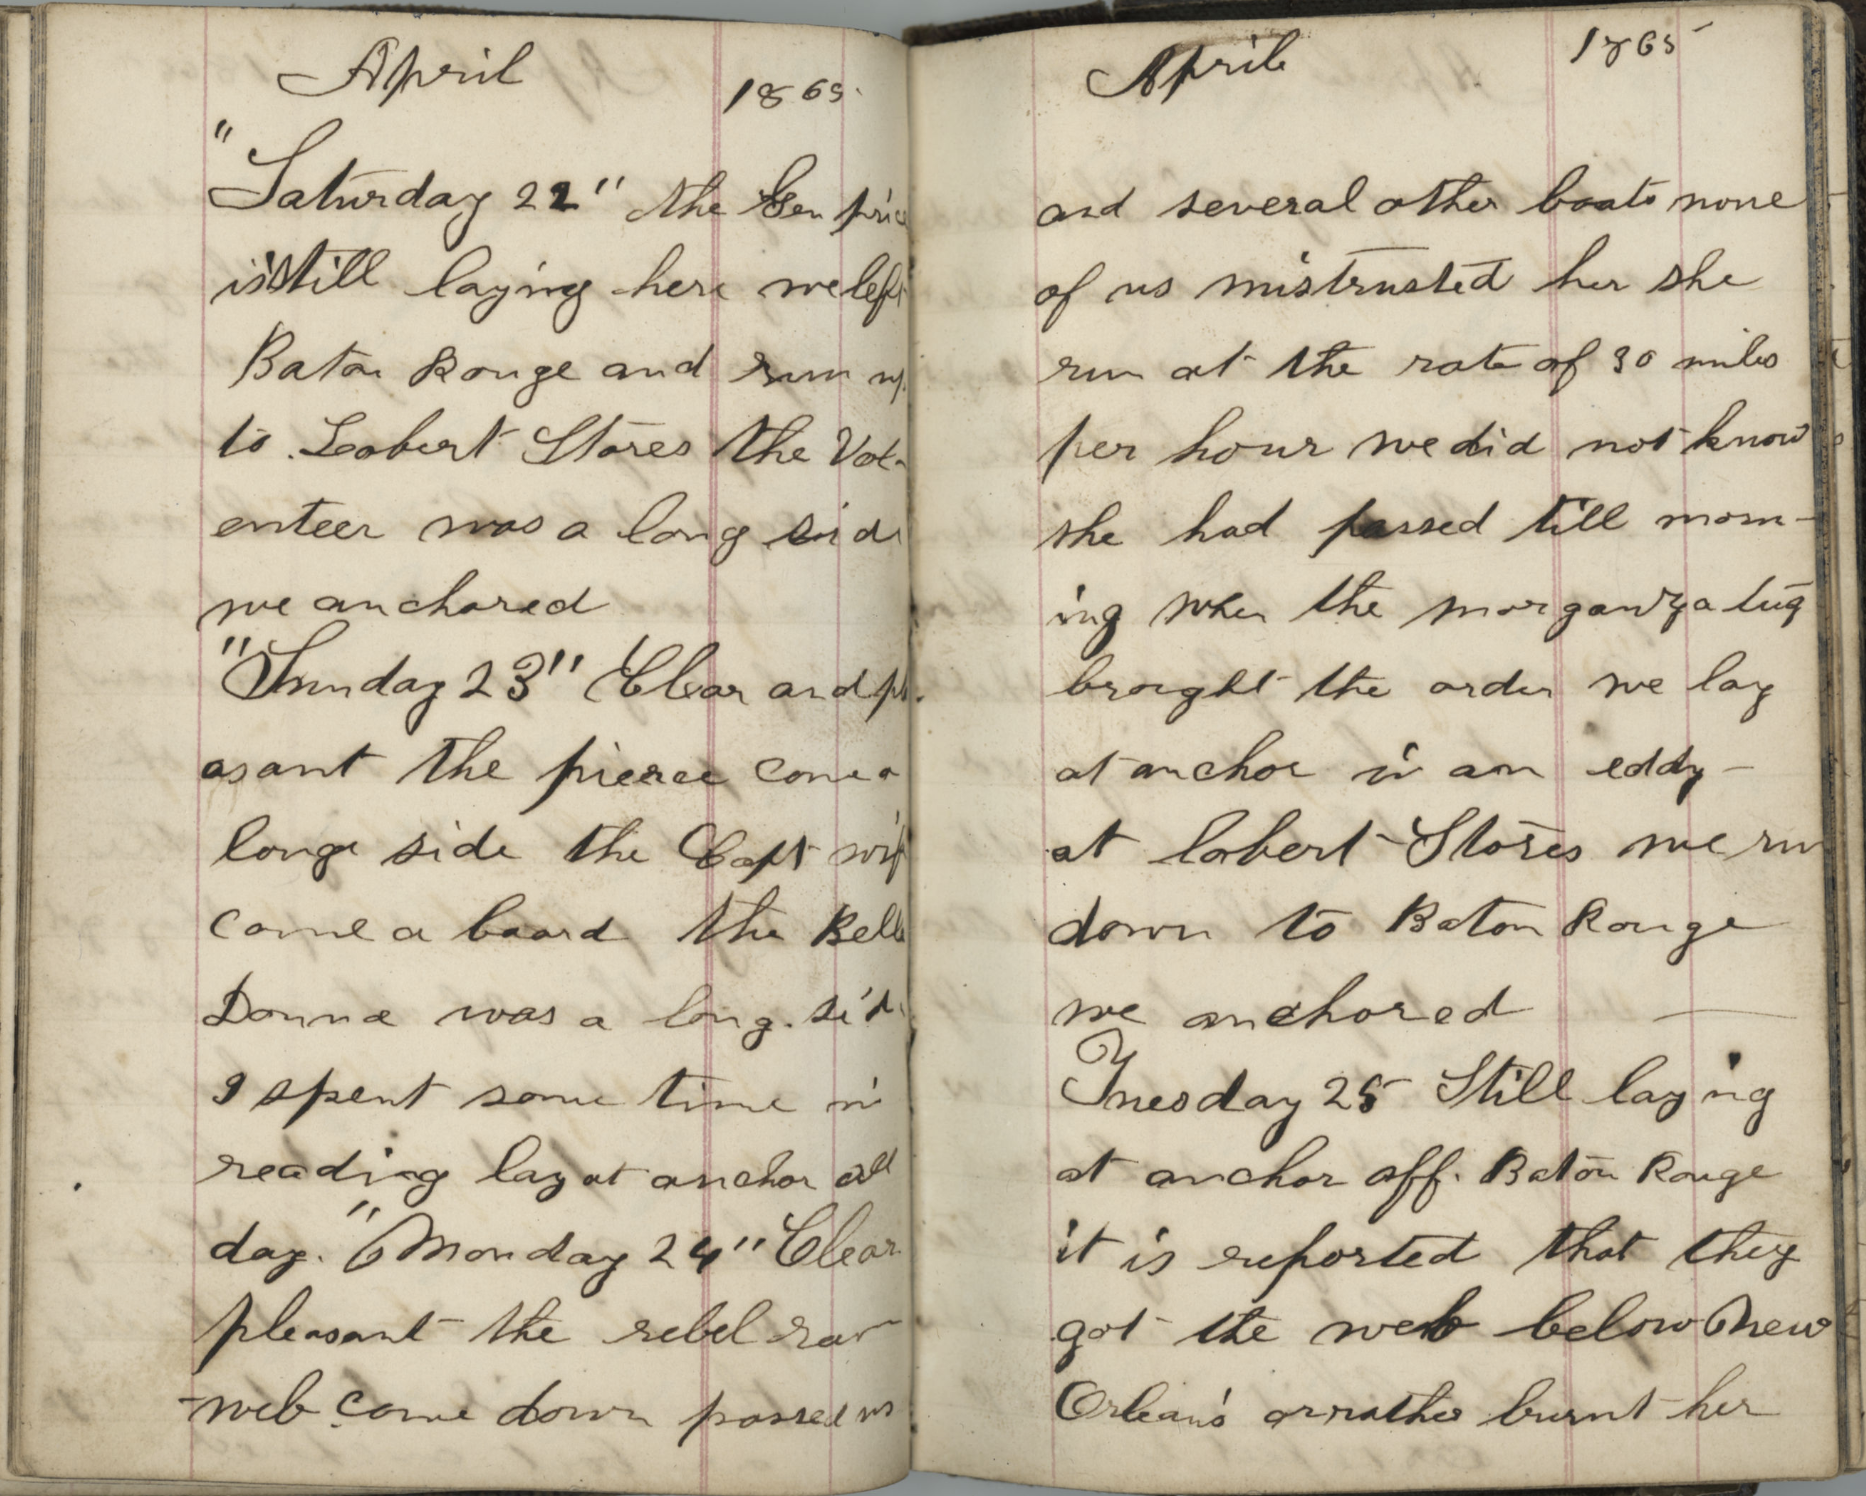 April 1865.
"Saturday 22" the Gen price
is still laying here we left
Baton Rouge and run up
to Lobert Stores the Vol-
enteer was a long side
we anchored
"Sunday 23" Clear and ple
asant the pierce come a
longe side the Capt wife
come a board the Bella
Donna was a long. side
I spent some time in
reading lay at anchor all
day. "Monday 24" Clear
pleasant the rebel ram
web come down passed us
April 1865
and several other boats none
of us mistrusted her she
run at the rate of 30 miles
per hour we did not know
she had passed till morn-
ing when the morganza tug
brought the order we lay
at anchor in an eddy -
at lobert Stores we run
down to Baton Rouge
we anchored —
Tuesday 25 Still laying
at anchor off. Baton Rouge
it is reported that they
got the web below New
Orleans or rather burnt her